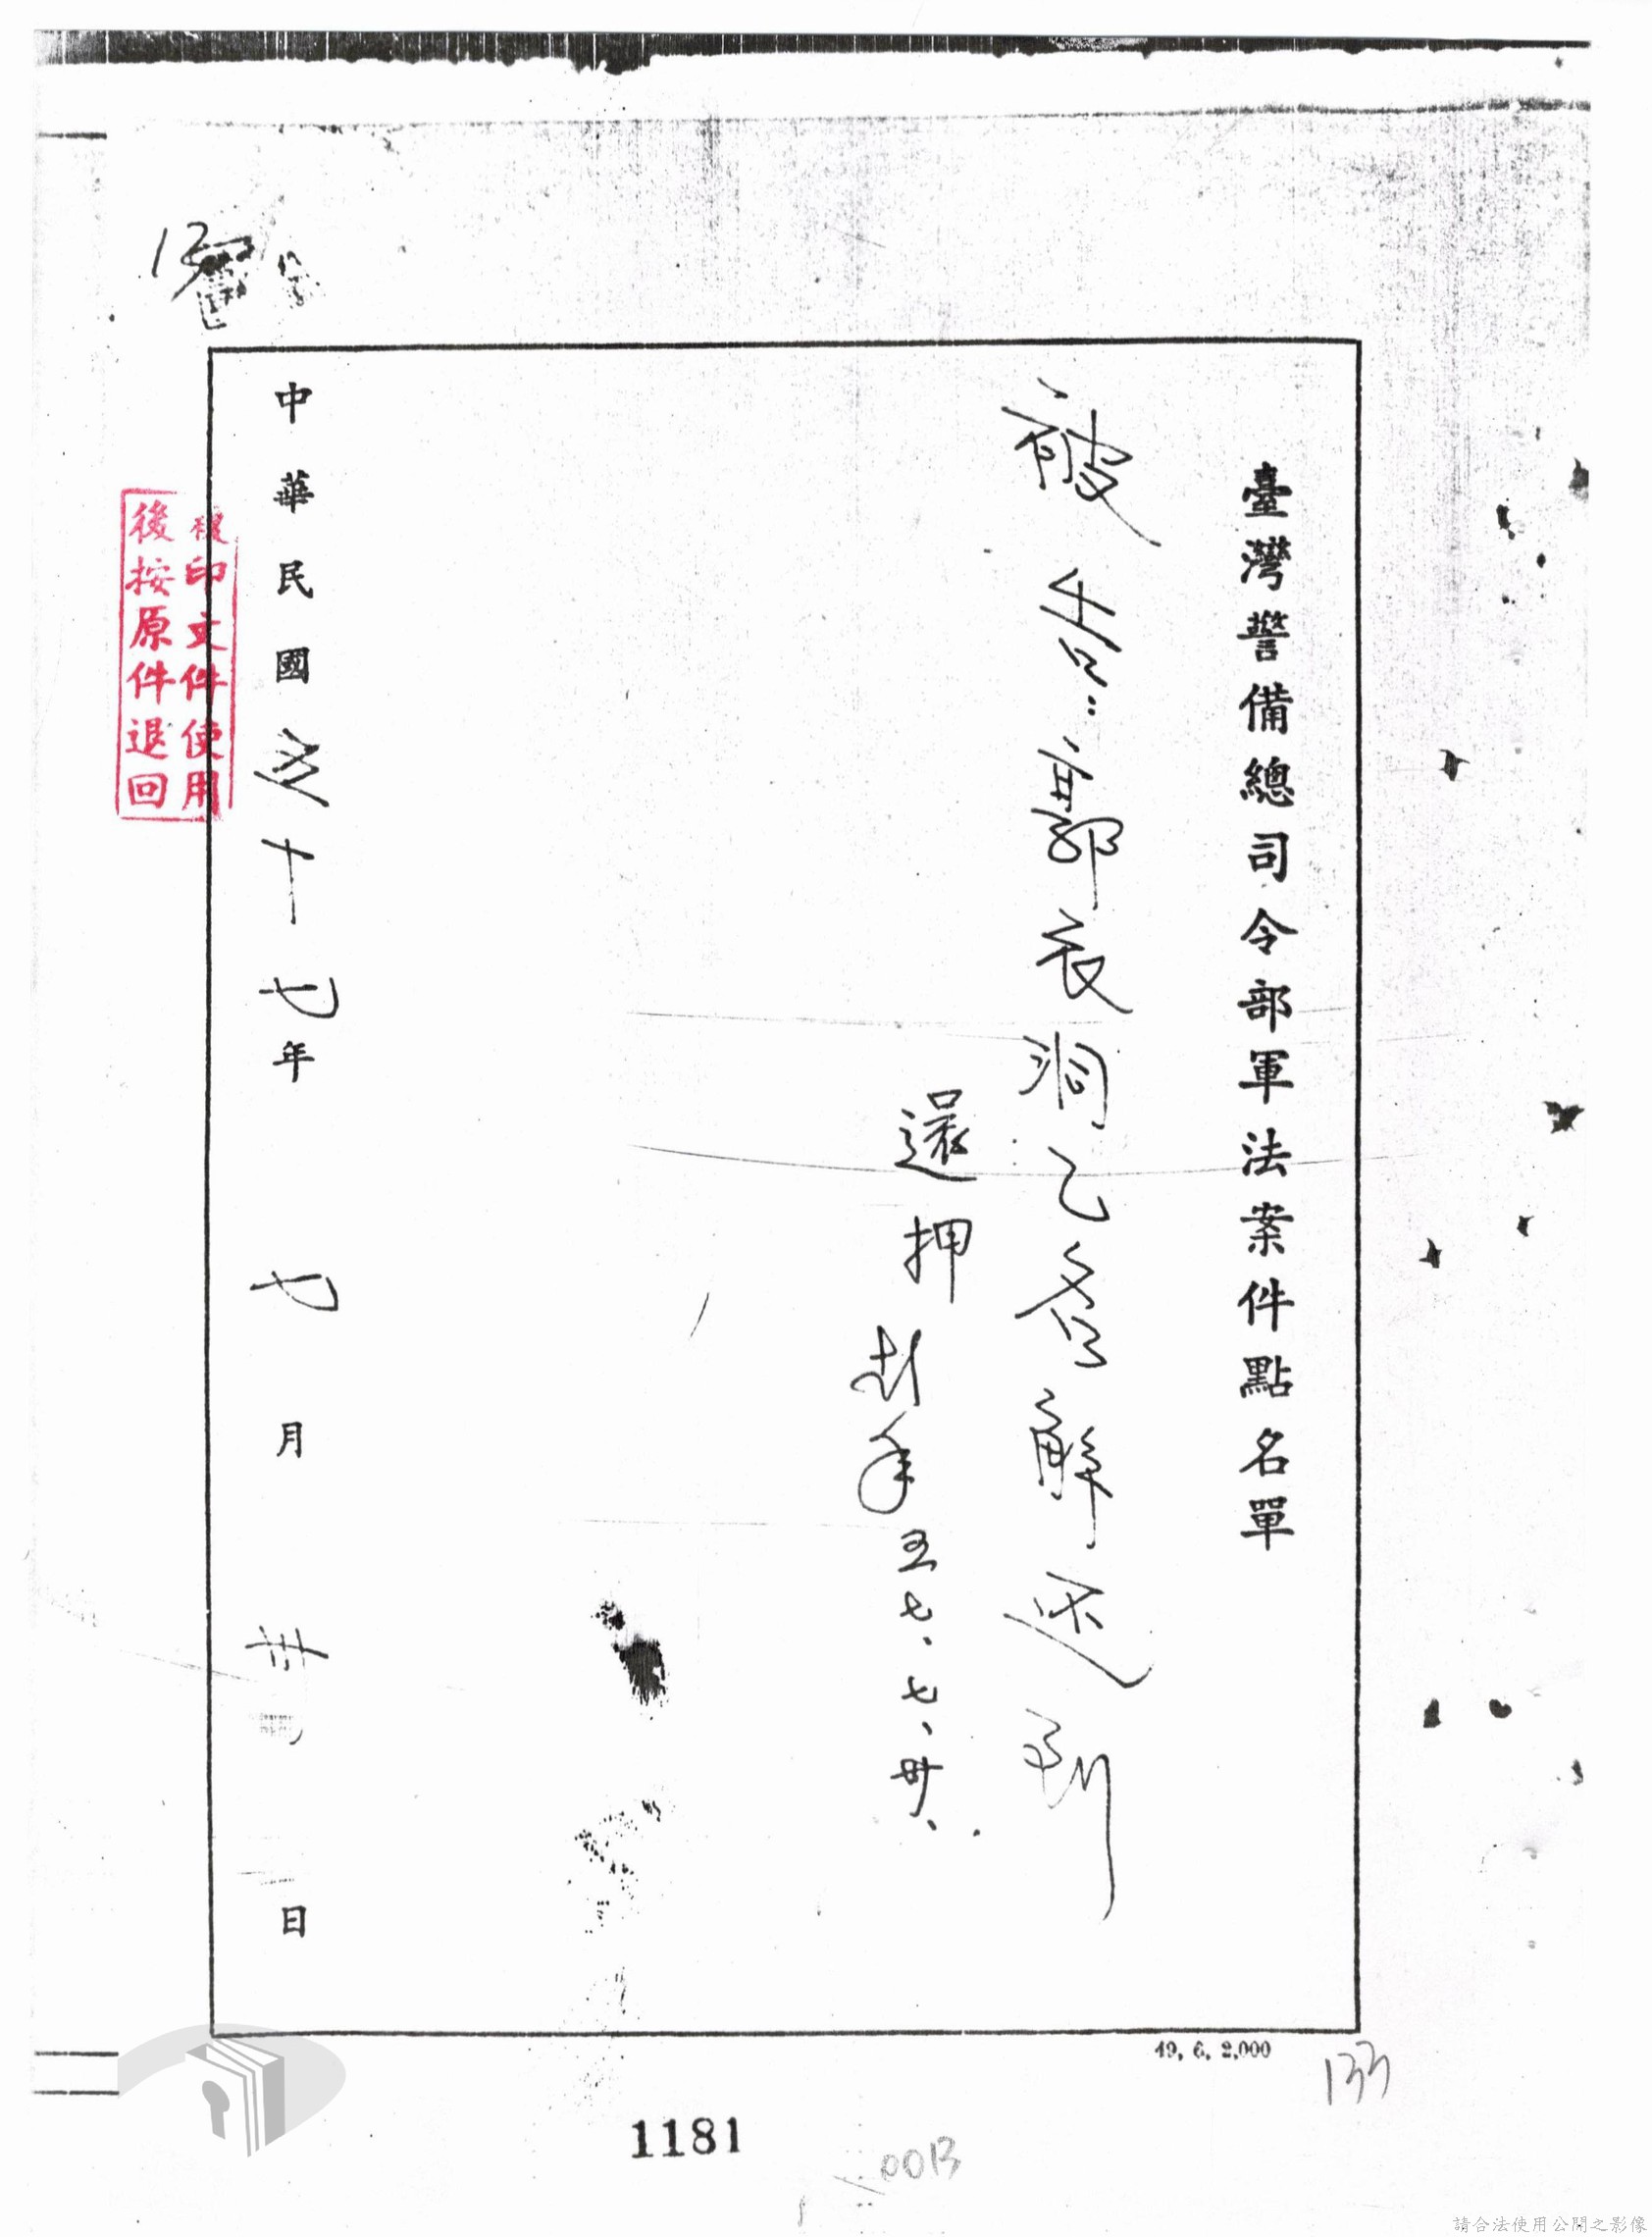 臺灣警備總司令部軍法案件點名單
被告：郭衣洞乙名解送到
還押
五七、七、卅、
中華民國五十七年七月卅日
複印文件使用
後按原件退回
49. 6. 2,000
133
1181
請合法使用公開之影像